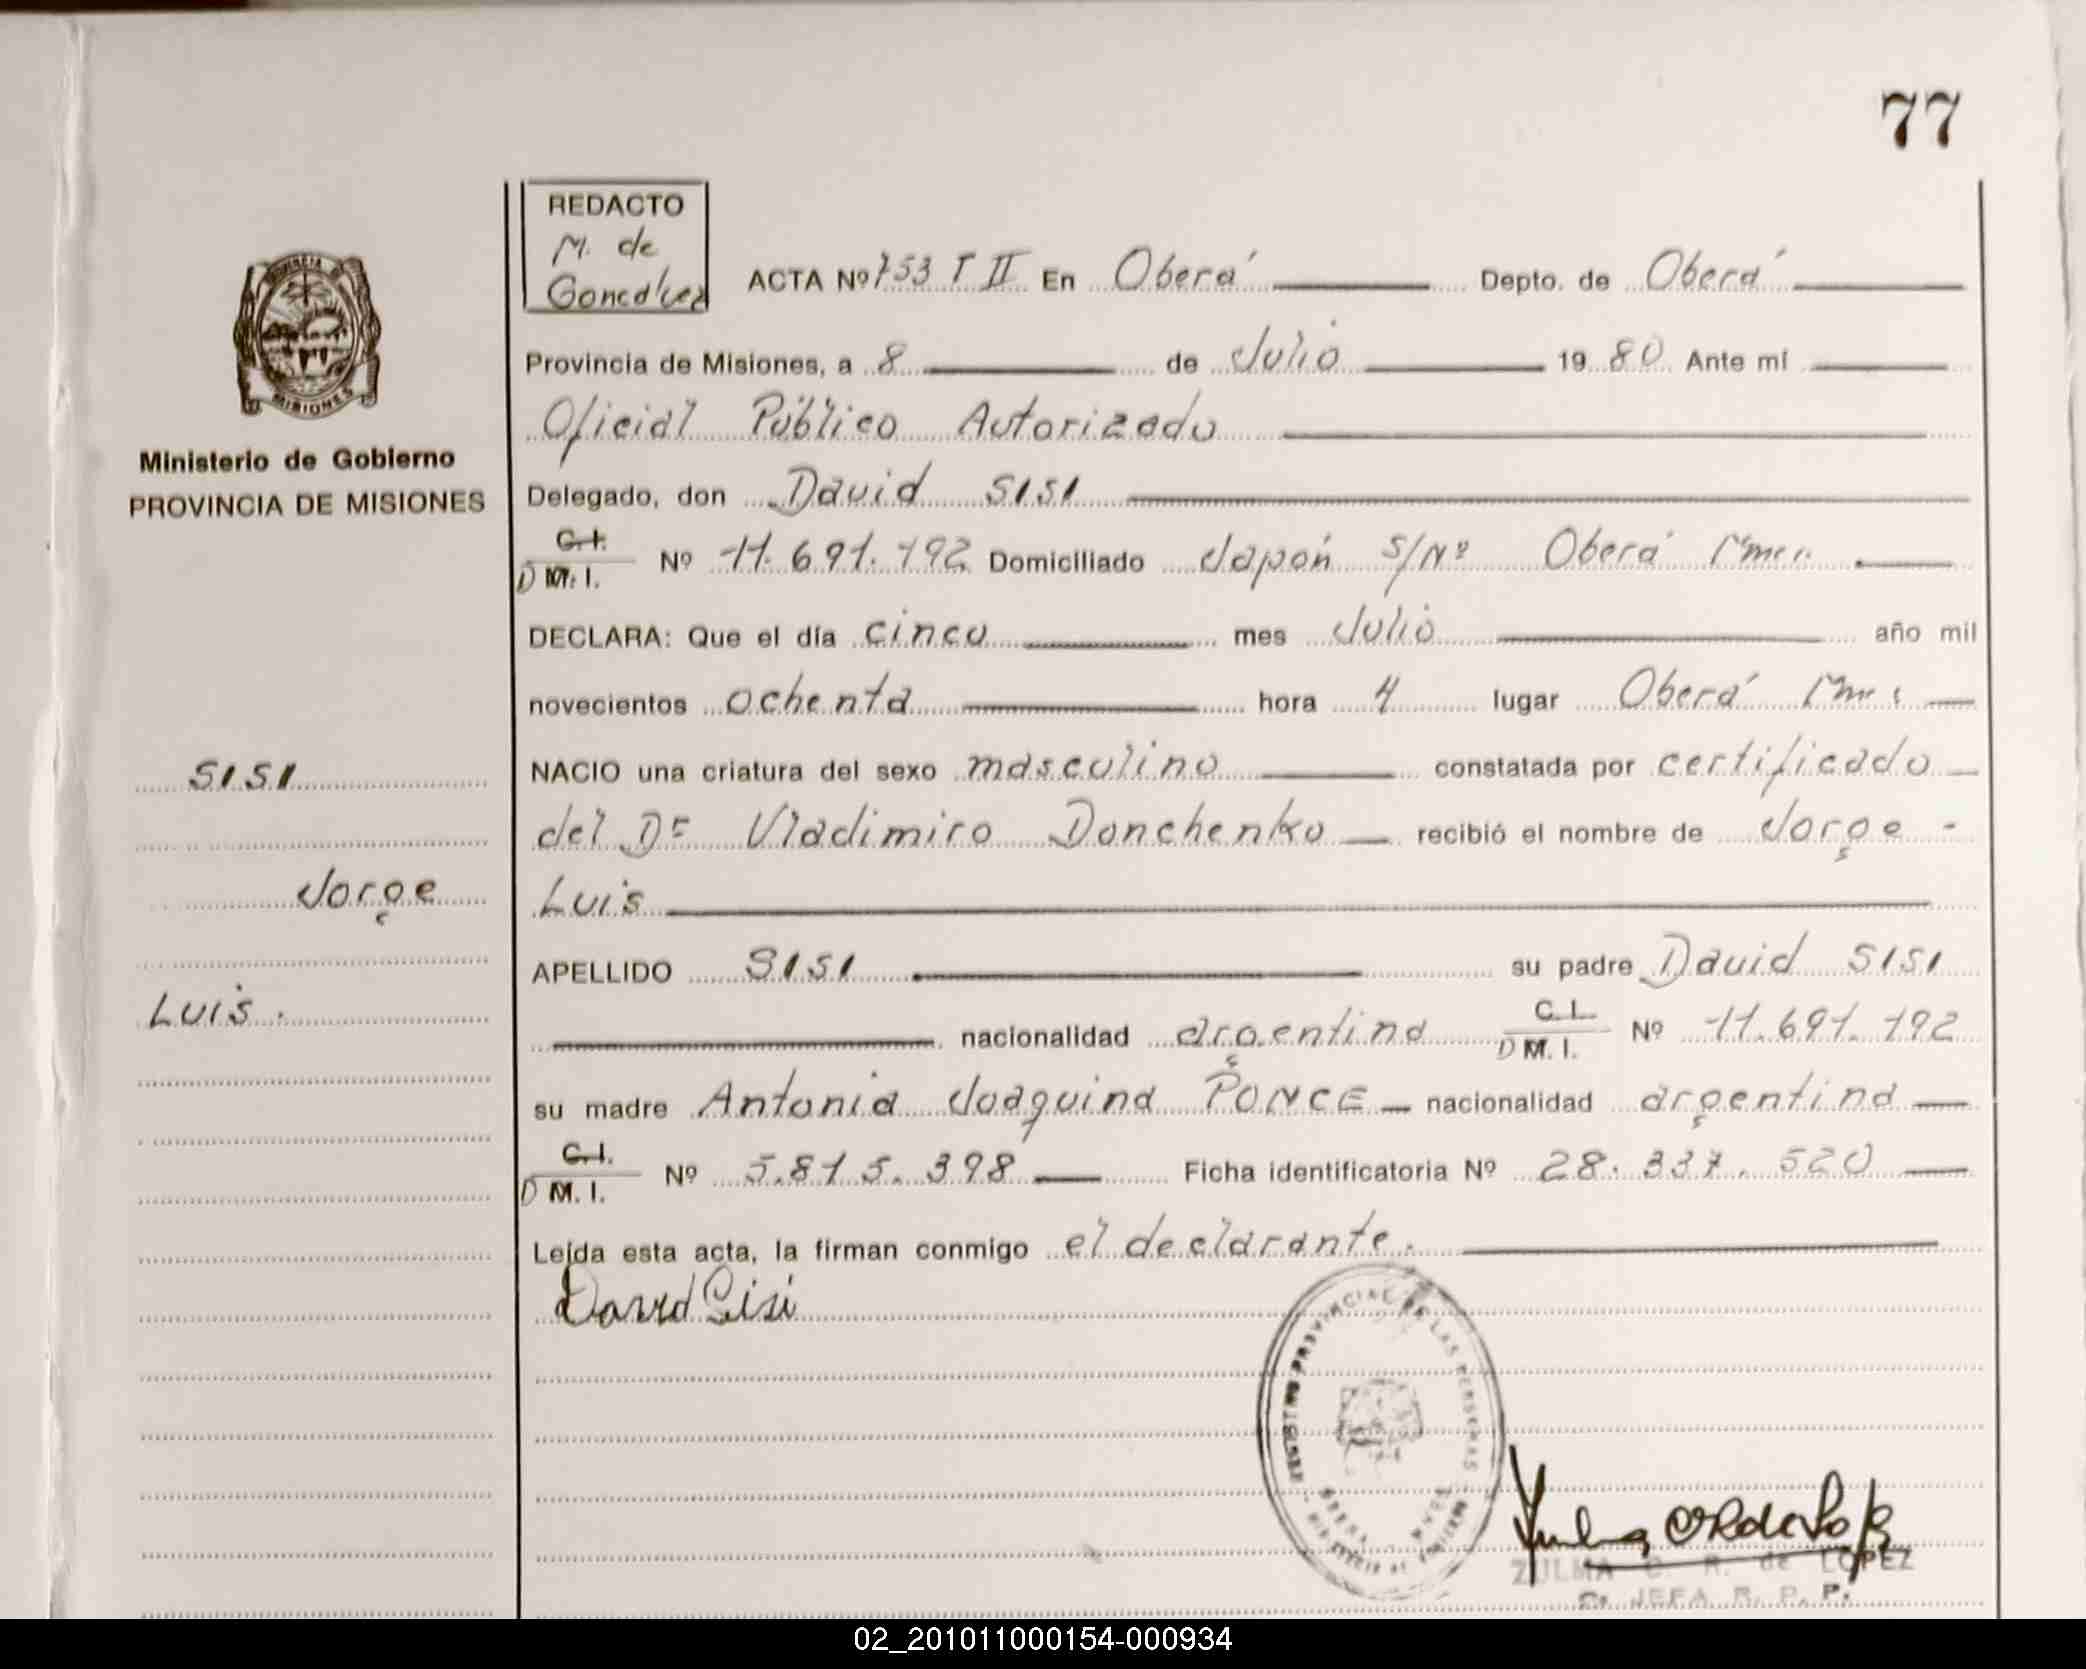 77
REDACTO
M. de
Goncalvez
ACTA Nº 753 T II En Oberá Depto. de Oberá
Provincia de Misiones, a 8 de Julio 1980 Ante mí
Oficial Público Autorizado
Ministerio de Gobierno
PROVINCIA DE MISIONES
Delegado, don David SISI
C.I. D M.I. Nº 11.691.192 Domiciliado Japón S/Nº Oberá
DECLARA: Que el día cinco mes Julio año mil
novecientos ochenta hora 4 lugar Oberá
SISI
NACIO una criatura del sexo masculino constatada por certificado
del Dr Vladimiro Donchenko recibió el nombre de Jorge -
Jorge
Luis
APELLIDO SISI su padre David SISI
Luis.
nacionalidad argentina C.I. D M.I. Nº 11.691.192
su madre Antonia Joaquina PONCE nacionalidad argentina
C.I. D M.I. Nº 5.815.398 Ficha identificatoria Nº 28.337.520
Leída esta acta, la firman conmigo el declarante.
David Sisi
ZULMA C. R. de LOPEZ
JEFA R. P. P.
02_201011000154-000934